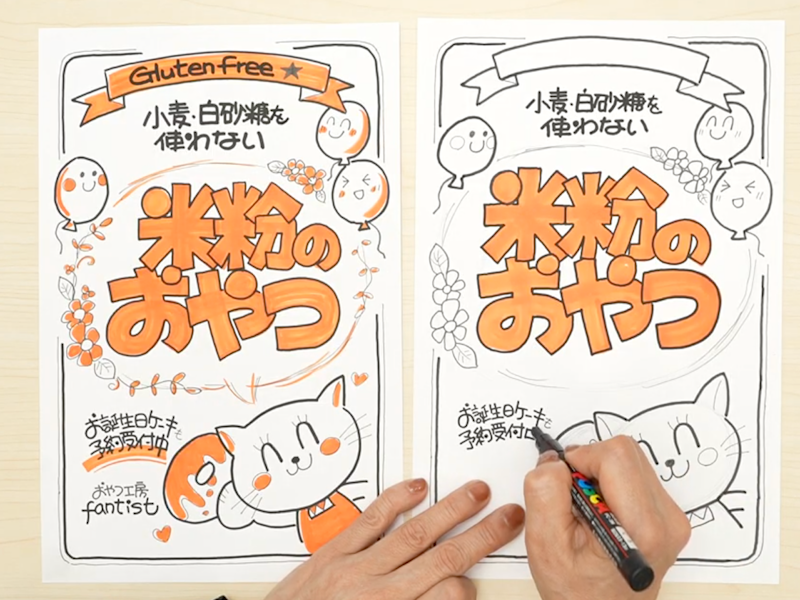 Gluten free ★
小麦・白砂糖を
使わない
米粉の
おやつ
お誕生日ケーキも
予約受付中
おやつ工房
fantist
小麦・白砂糖を
使わない
米粉の
おやつ
お誕生日ケーキも
予約受付